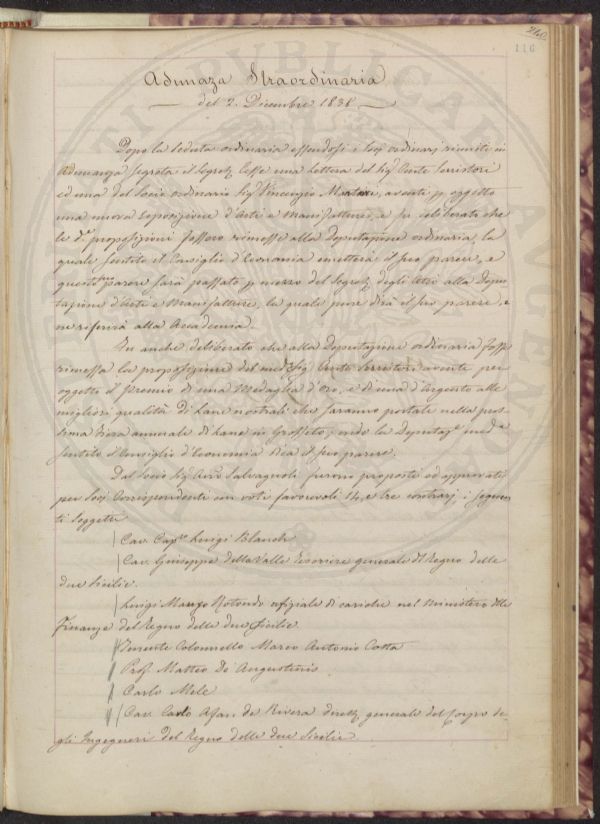 116
Adunaza Straordinaria
del 2. Dicembre 1838
Dopo la seduta ordinaria essendosi i Socj ordinarj riuniti in
Adunanza segreta il Segret. lesse una Lettera del Sig. Conte Serristori
ed una del Socio ordinario Sig. Vincenzio aventi p. oggetto
una nuova Esposizione d'Arti e Manifatture, e fu deliberato che
le d.e proposizioni fossero rimesse alla Deputazione ordinaria, la
quale sentito il Consiglio d'Economia emetterà il suo parere, e
questo parere sarà passato p. mezzo del Segret. degli Atti alla Depu-
tazione d'Arti e Manifatture, la quale pure dirà il suo parere, e
ne riferirà alla Accademia.
Fu anche deliberato che alla Deputazione ordinaria fosse
rimessa la proposizione del med. Sig. Conte Serristori avente per
oggetto il Premio di una Medaglia d'Oro, e di una d'Argento alle
migliori qualità di Lane nostrali che saranno portate nella pros-
sima Fiera annuale di Lane in Grosseto; onde la Deputaz.e med.a
sentito il Consiglio d'Economia dica il suo parere.
Dal Socio Sig. Avv. Salvagnoli furono proposti ed approvati
per Socj Corrispondenti con voti favorevoli 14, e tre contrarj, i seguen-
ti Soggetti
Cav. Cap.o Luigi Blanch
Cav. Giuseppe della Valle Tesoriere generale del Regno delle
due Sicilie.
Luigi Manzo Rotondo ufiziale di carico nel Ministero delle
Finanze del Regno delle due Sicilie
Tenente Colonnello Marco Antonio Costa
Prof. Matteo De Augustinis
Carlo Mele
Cav. Carlo Afan de Rivera dirett. generale del Corpo de-
gli Ingegneri del Regno delle due Sicilie